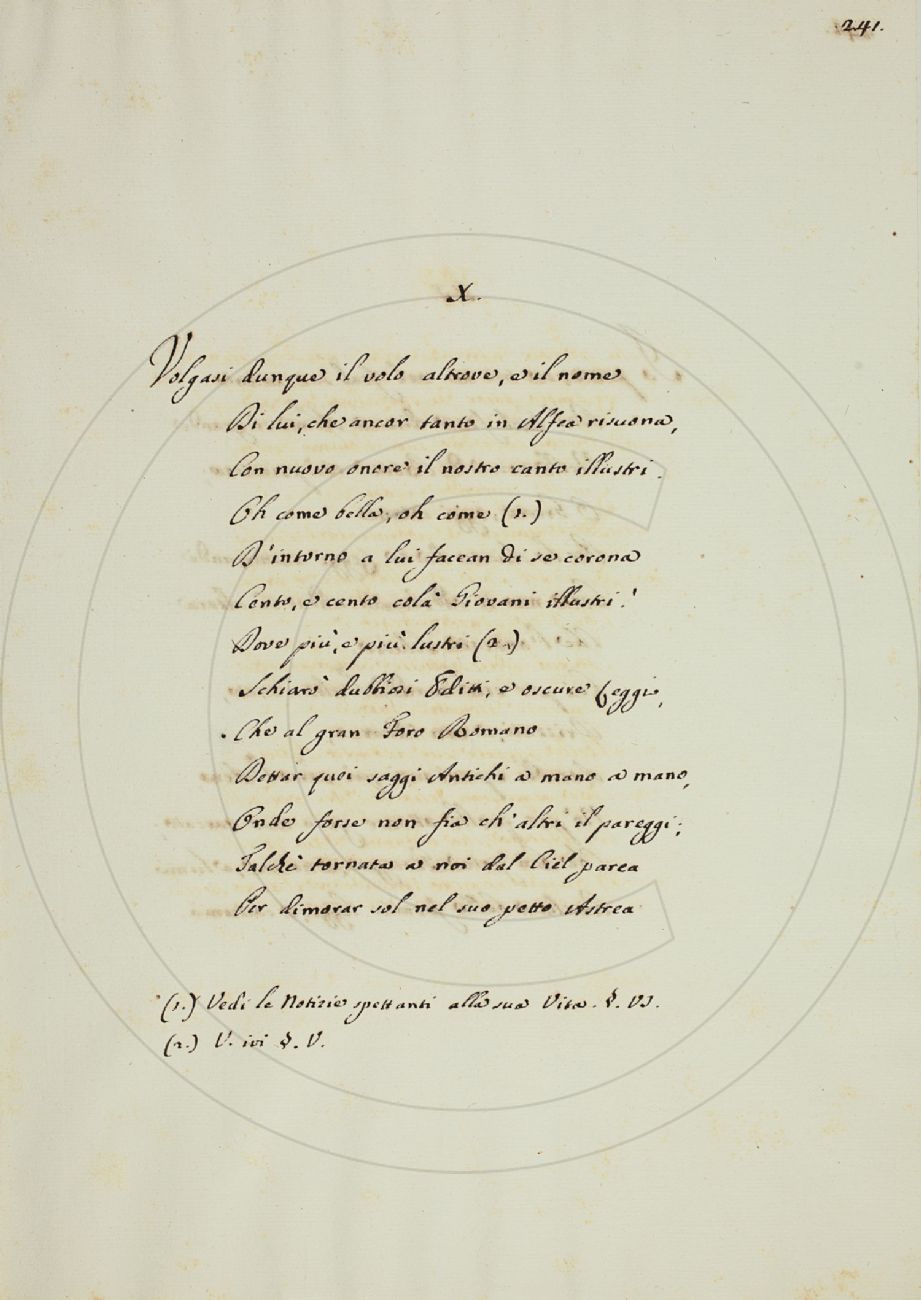 241.
X.
Volgasi dunque il volo altrove, e il nome
Di lui, che ancor tanto in Alfea risuona,
Con nuovo onore il nostro canto illustri.
Oh come bella, oh come (1.)
D'intorno a lui facean di se corona
Cento, e cento colà Giovani illustri!
Dove più, e più lustri (2.)
Schiarò dubbiosi Editti, e oscure Leggi,
Che al gran Foro Romano
Dettar quei saggi Antichi a mano a mano,
Onde forse non fia ch'altri il pareggi;
Talchè tornata a noi dal Ciel parea
Per dimorar sol nel suo petto Astrea
(1.) Vedi le Notizie spettanti alla sua Vita. §. VI.
(2.) V. ivi §. V.